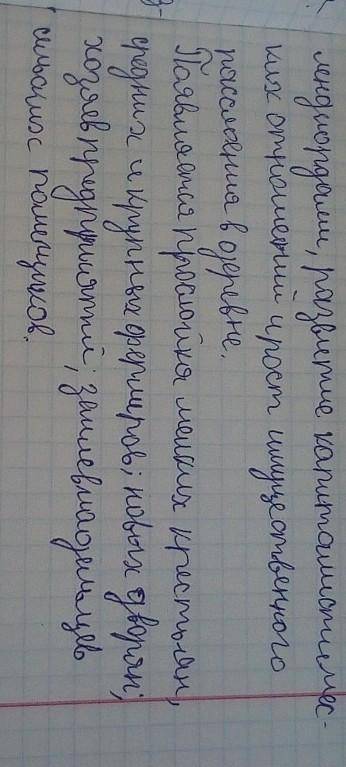 лендлордами, развитие капиталистичес-
ких отношений и рост имущественного
расслоения в деревне.
Появляется прослойка мелких крестьян,
средних и крупных фермеров; новых дворян;
хозяев предприятий; землевладельцев
помещиков.